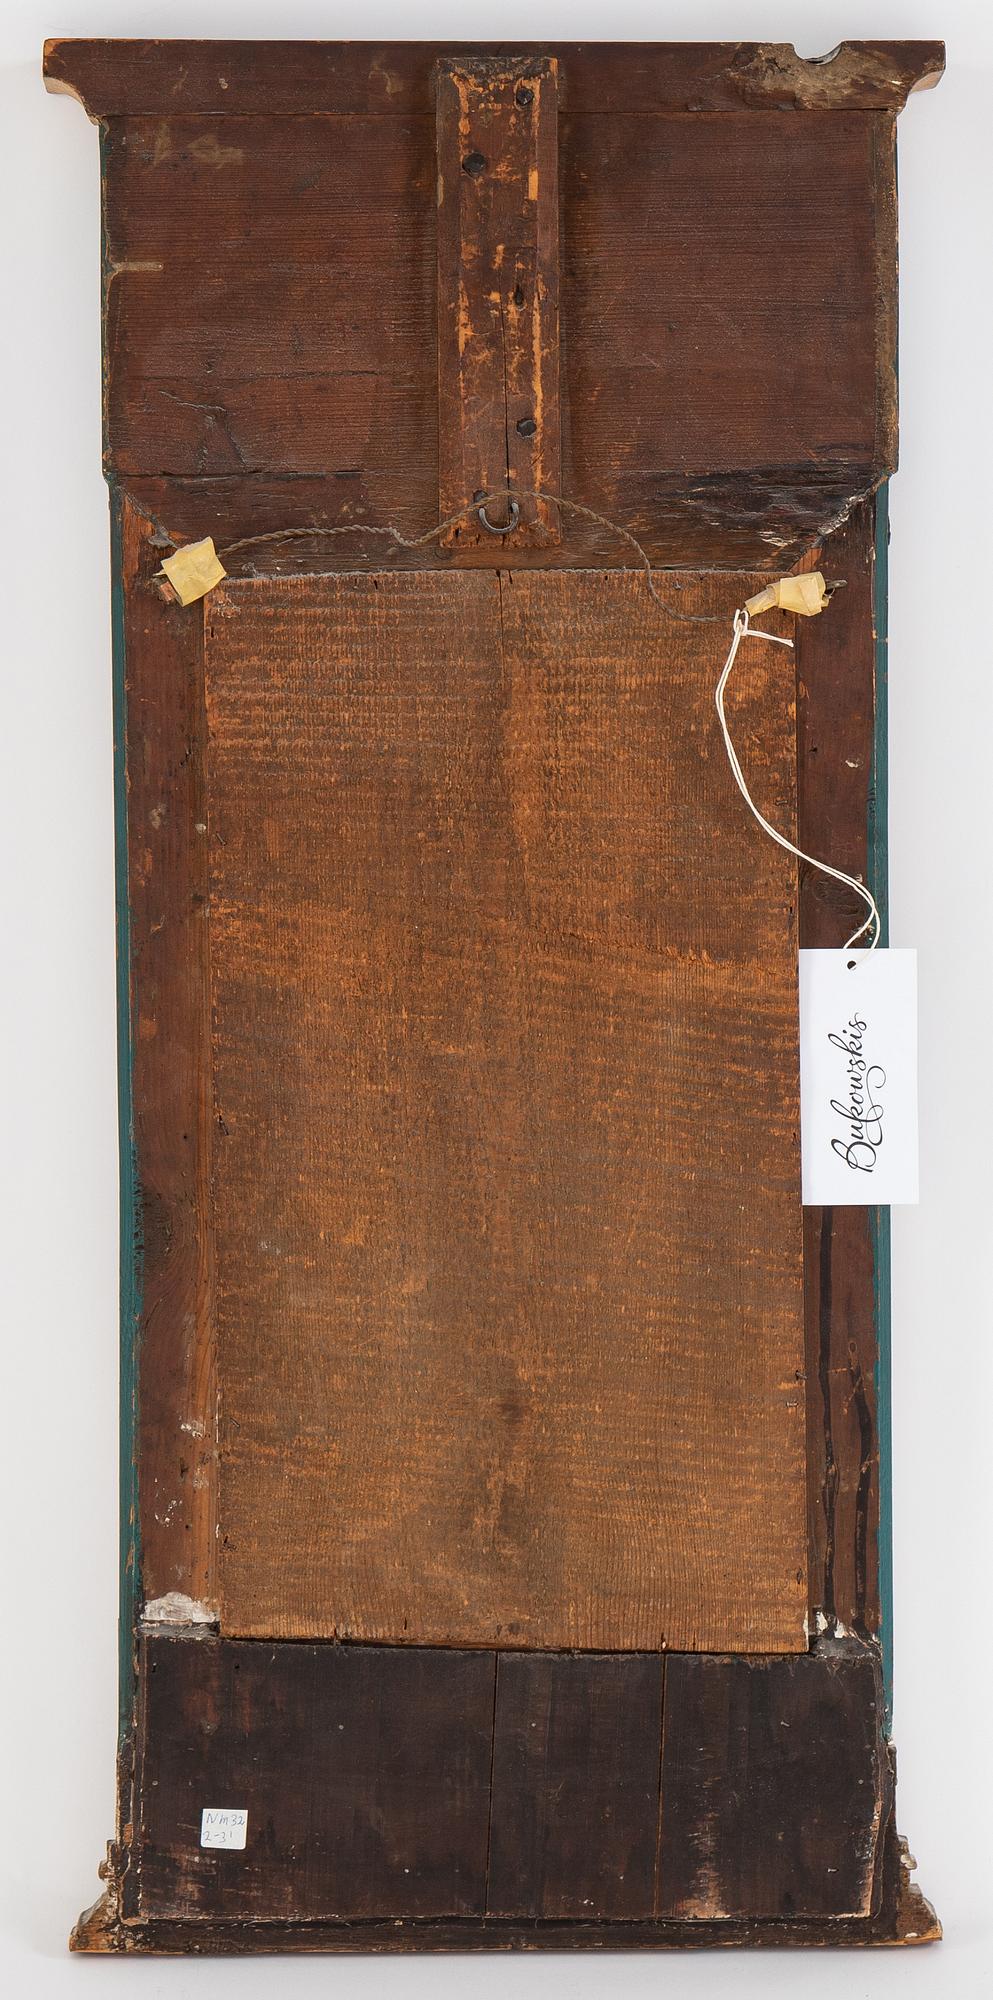 Bukowskis
NM32
2-31